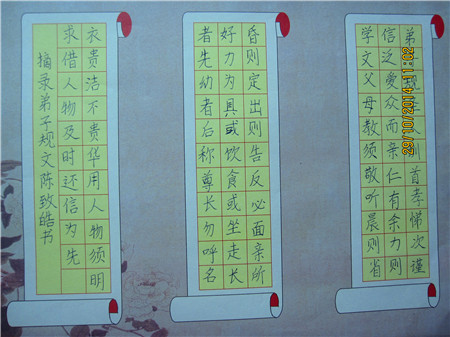 弟子规圣人训首孝悌次谨
信泛爱众而亲仁有余力则
学文父母教须敬听晨则省
昏则定出则告反必面亲所
好力为具或饮食或坐走长
者先幼者后称尊长勿呼名
衣贵洁不贵华用人物须明
求借人物及时还信为先
摘录弟子规文陈致皓书
29/10/2014 11:02